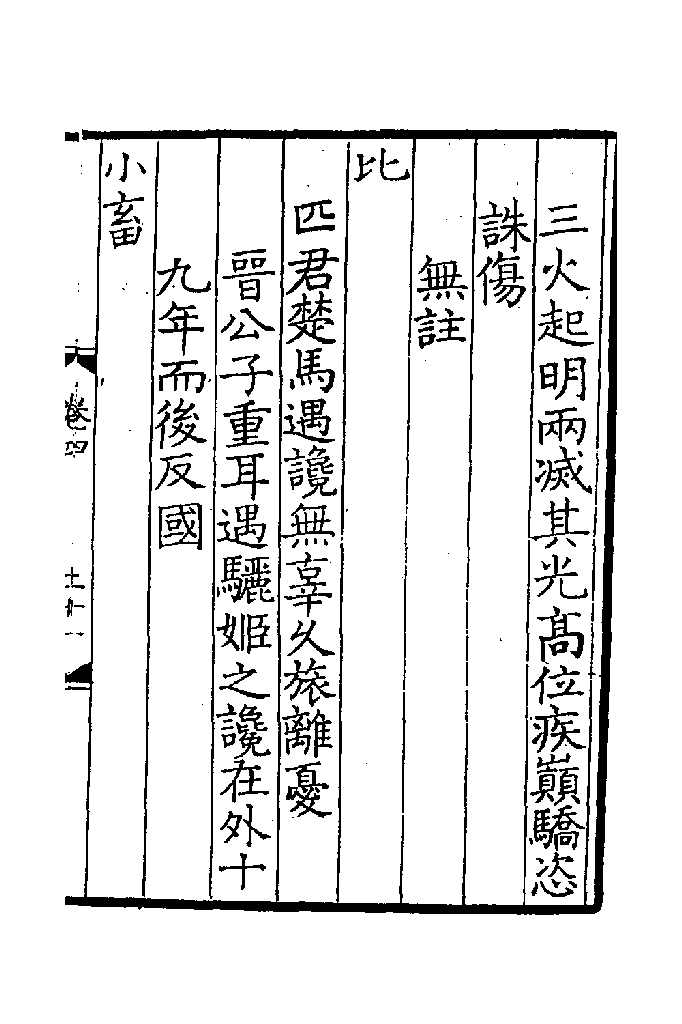 三火起明兩滅其光高位疾巔驕恣
誅傷
無註
比
匹君楚馬遇讒無辜久旅離憂
晉公子重耳遇驪姬之讒在外十
九年而後反國
小畜
卷四